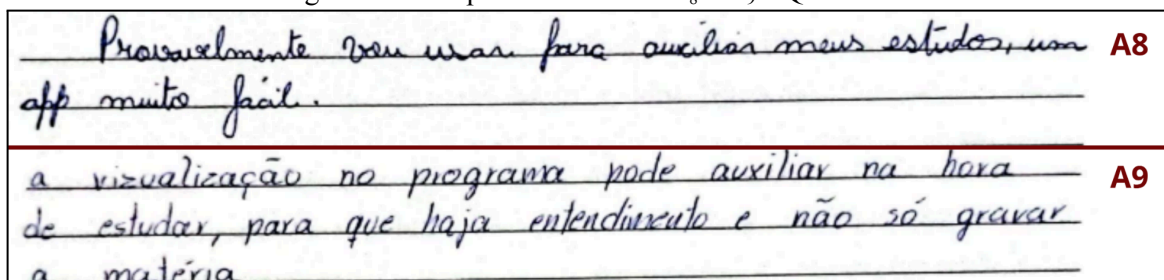 Provavelmente vou usar para auxiliar meus estudos, um A8
app muito fácil.
a vizualização no programa pode auxiliar na hora A9
de estudar, para que haja entendimento e não só gravar
a matéria